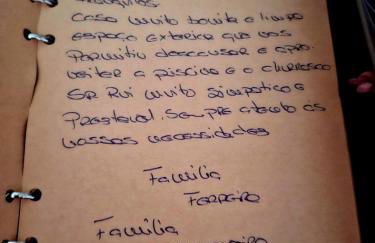 Casa muito bonita e limpa
espaço exterior que nos
Permitiu descansar e apro-
veitar a piscina e o churrasco
Sr Rui muito simpatico e
Prestavel. Sempre atento às
nossas necessidades
Familia
Ferreira
Familia